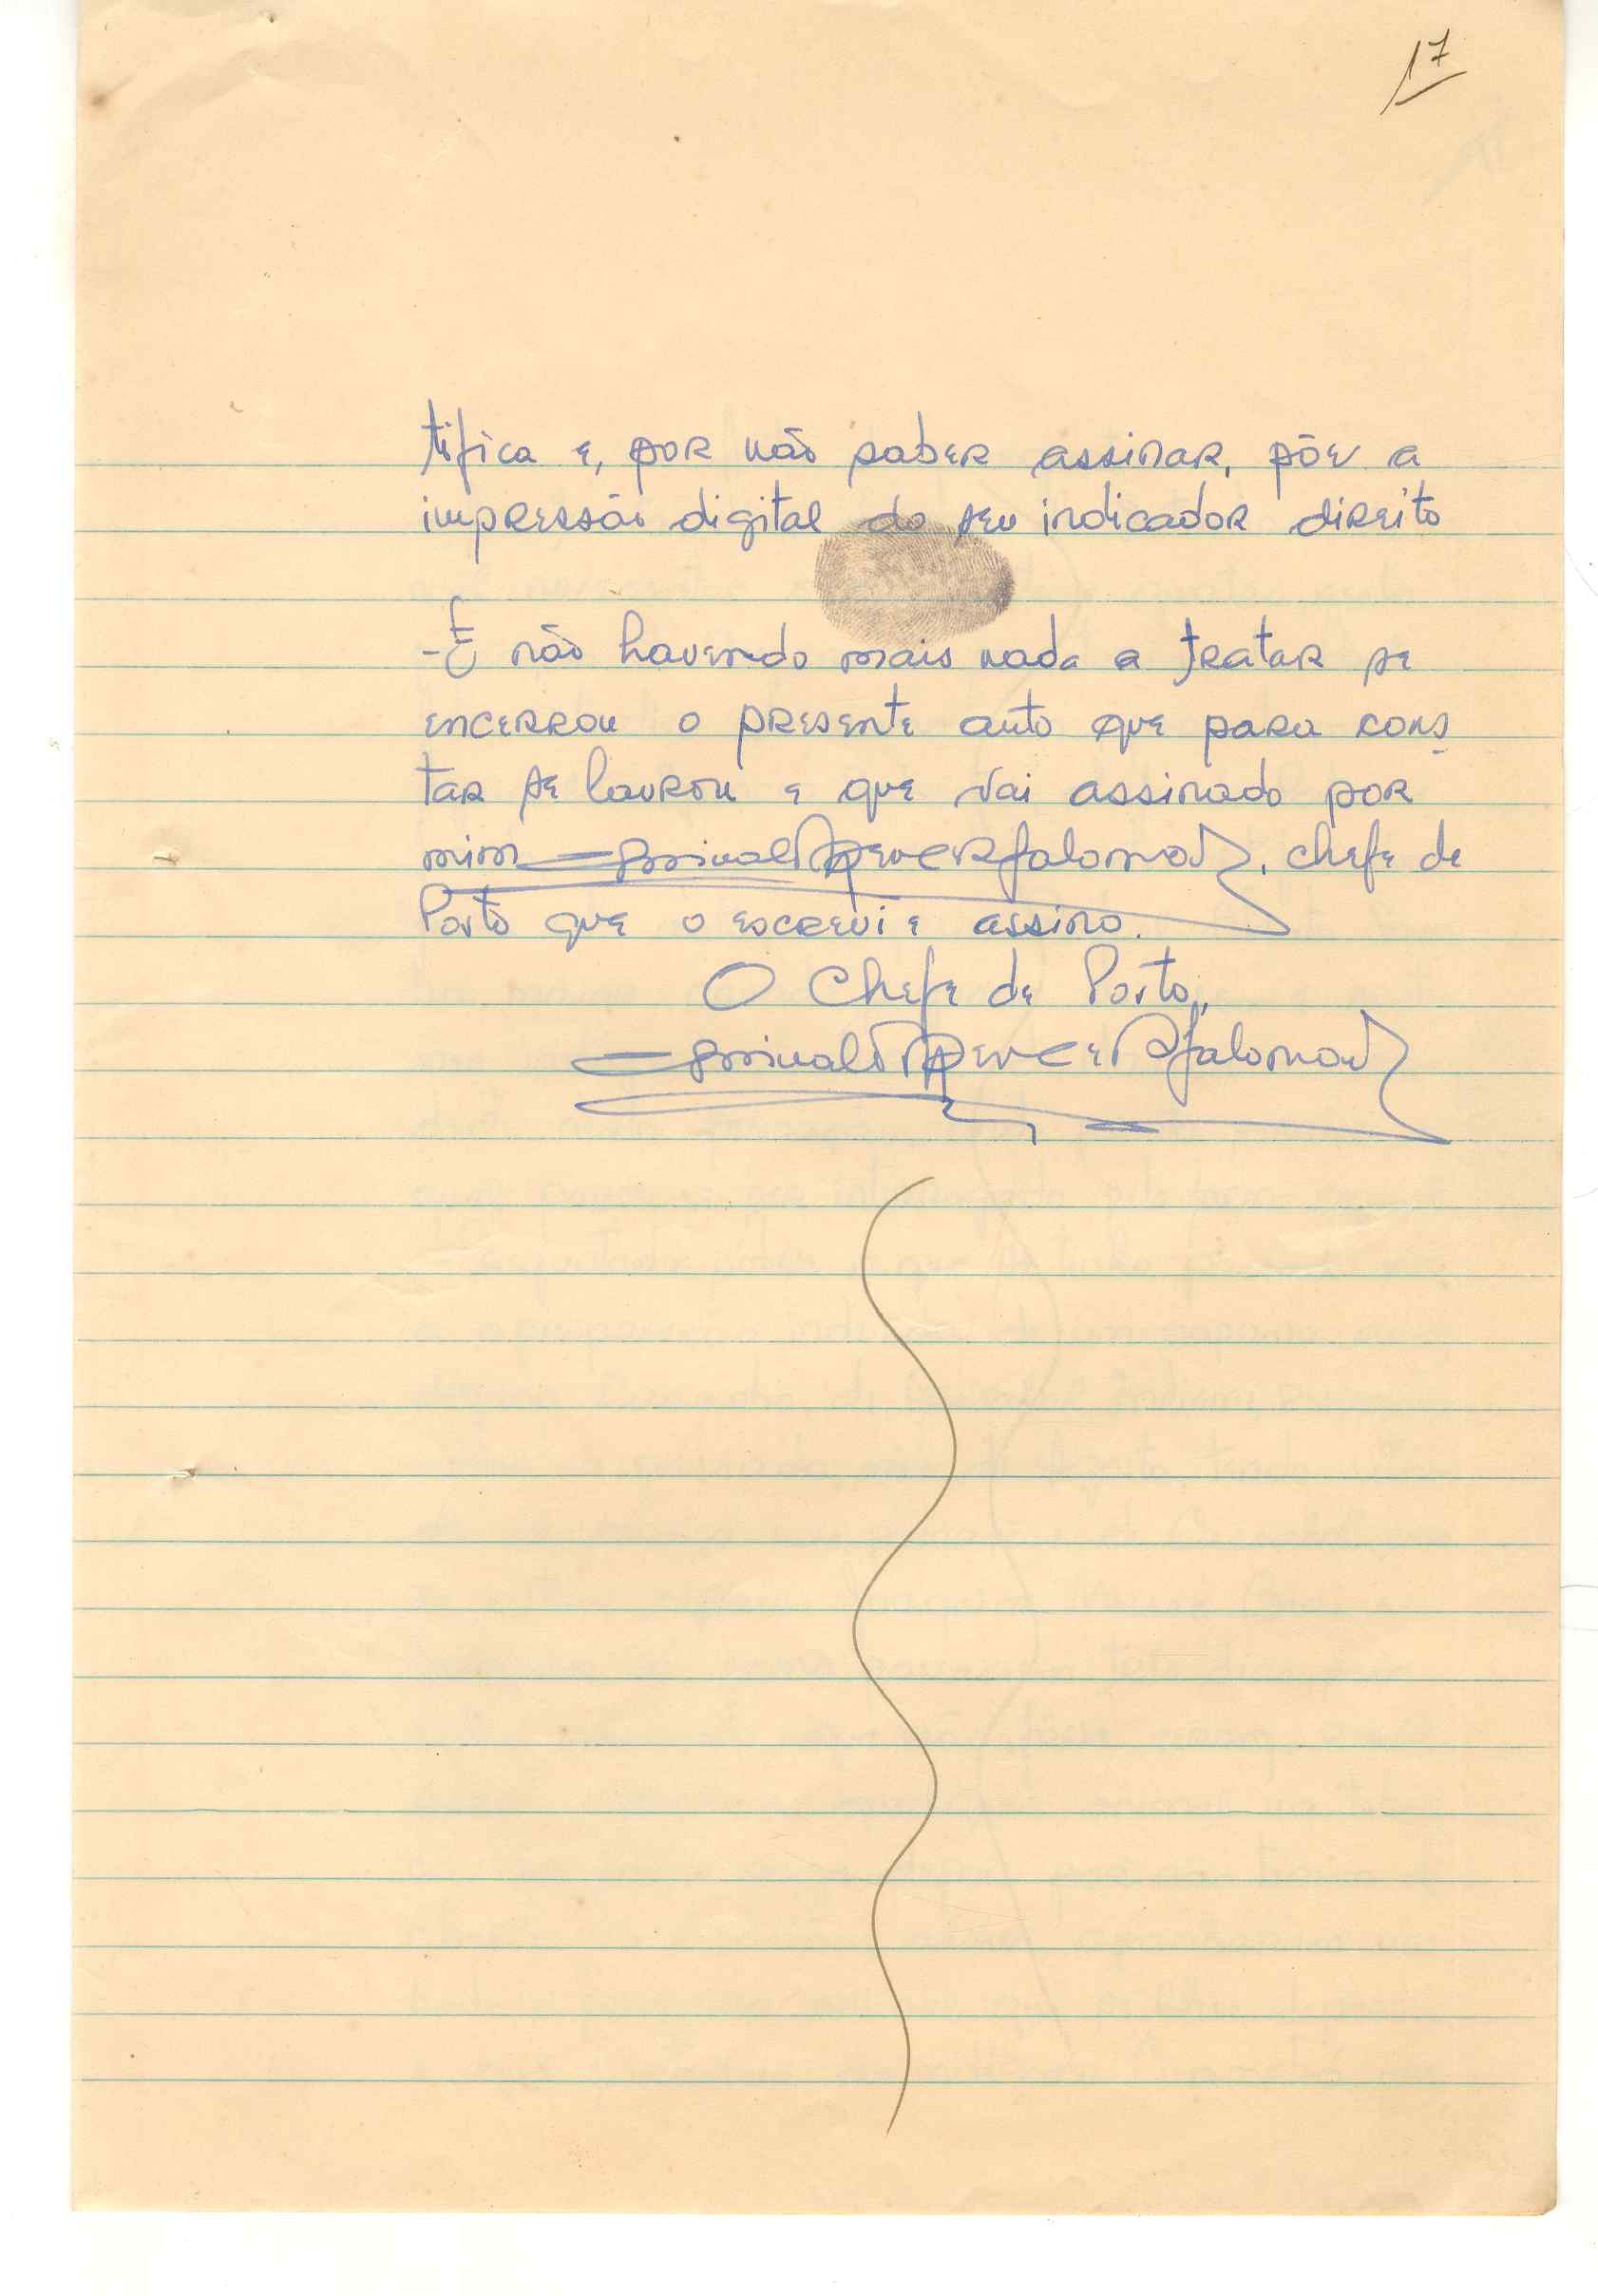 17
tifica e, por não saber assinar, põe a
impressão digital do seu indicador direito
-E não havendo mais nada a tratar se
encerrou o presente auto que para cons
tar se lavrou e que vai assinado por
mim, chefe de
Posto que o escrevi e assino.
O Chefe de Posto,